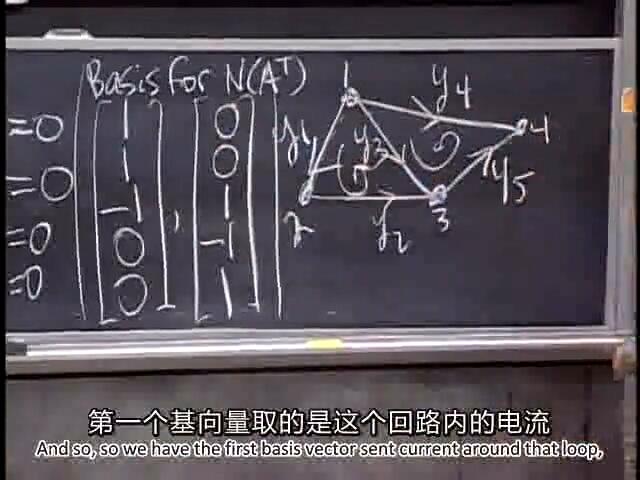 Basis for N(Aᵀ)
=0
=0
=0
=0
1
1
-1
0
0
,
0
0
1
-1
1
1
y4
4
y1
y3
y5
2
y2
3
第一个基向量取的是这个回路内的电流
And so, so we have the first basis vector sent current around that loop,